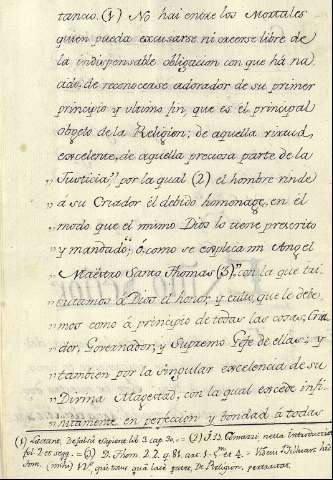 tancio. (1) No hai entre los Mortales
quien pueda excusarse, ni creerse libre de
la indispensable obligacion con que há na-
cido, de reconocerse adorador de su primer
principio y ultimo fin, que es el principal
objeto de la Religion; de aquella virtud,
excelente, de aquella preciosa parte de la
„ Justicia, " por la qual (2) el hombre rinde
„ á su Criador él debido homenage, en el
„ modo que el mismo Dios lo tiene prescrito
„ y mandado"; ó como se explica mi Angel
„ Maestro Santo Thomas (3) "con la que tri-
„ butamos á Dios el honor, y culto, que le debe-
„ mos como á principio de todas las cosas, Cria-
„ dor, Governador, y Supremo Gefe de ellas; y
„ tambien por la singular excelencia de su
„ Divina Magestad, con la qual excede infi-
„ nitamente en perfeccion y bondad á todas
(1) Lactant. De falsa Sapient. lib 3. cap. 30. = (2) nella Introduccion
fol. 2. et seqq. = (3) D. Thom. 2. 2. q. 81. art. 1. et 4. =